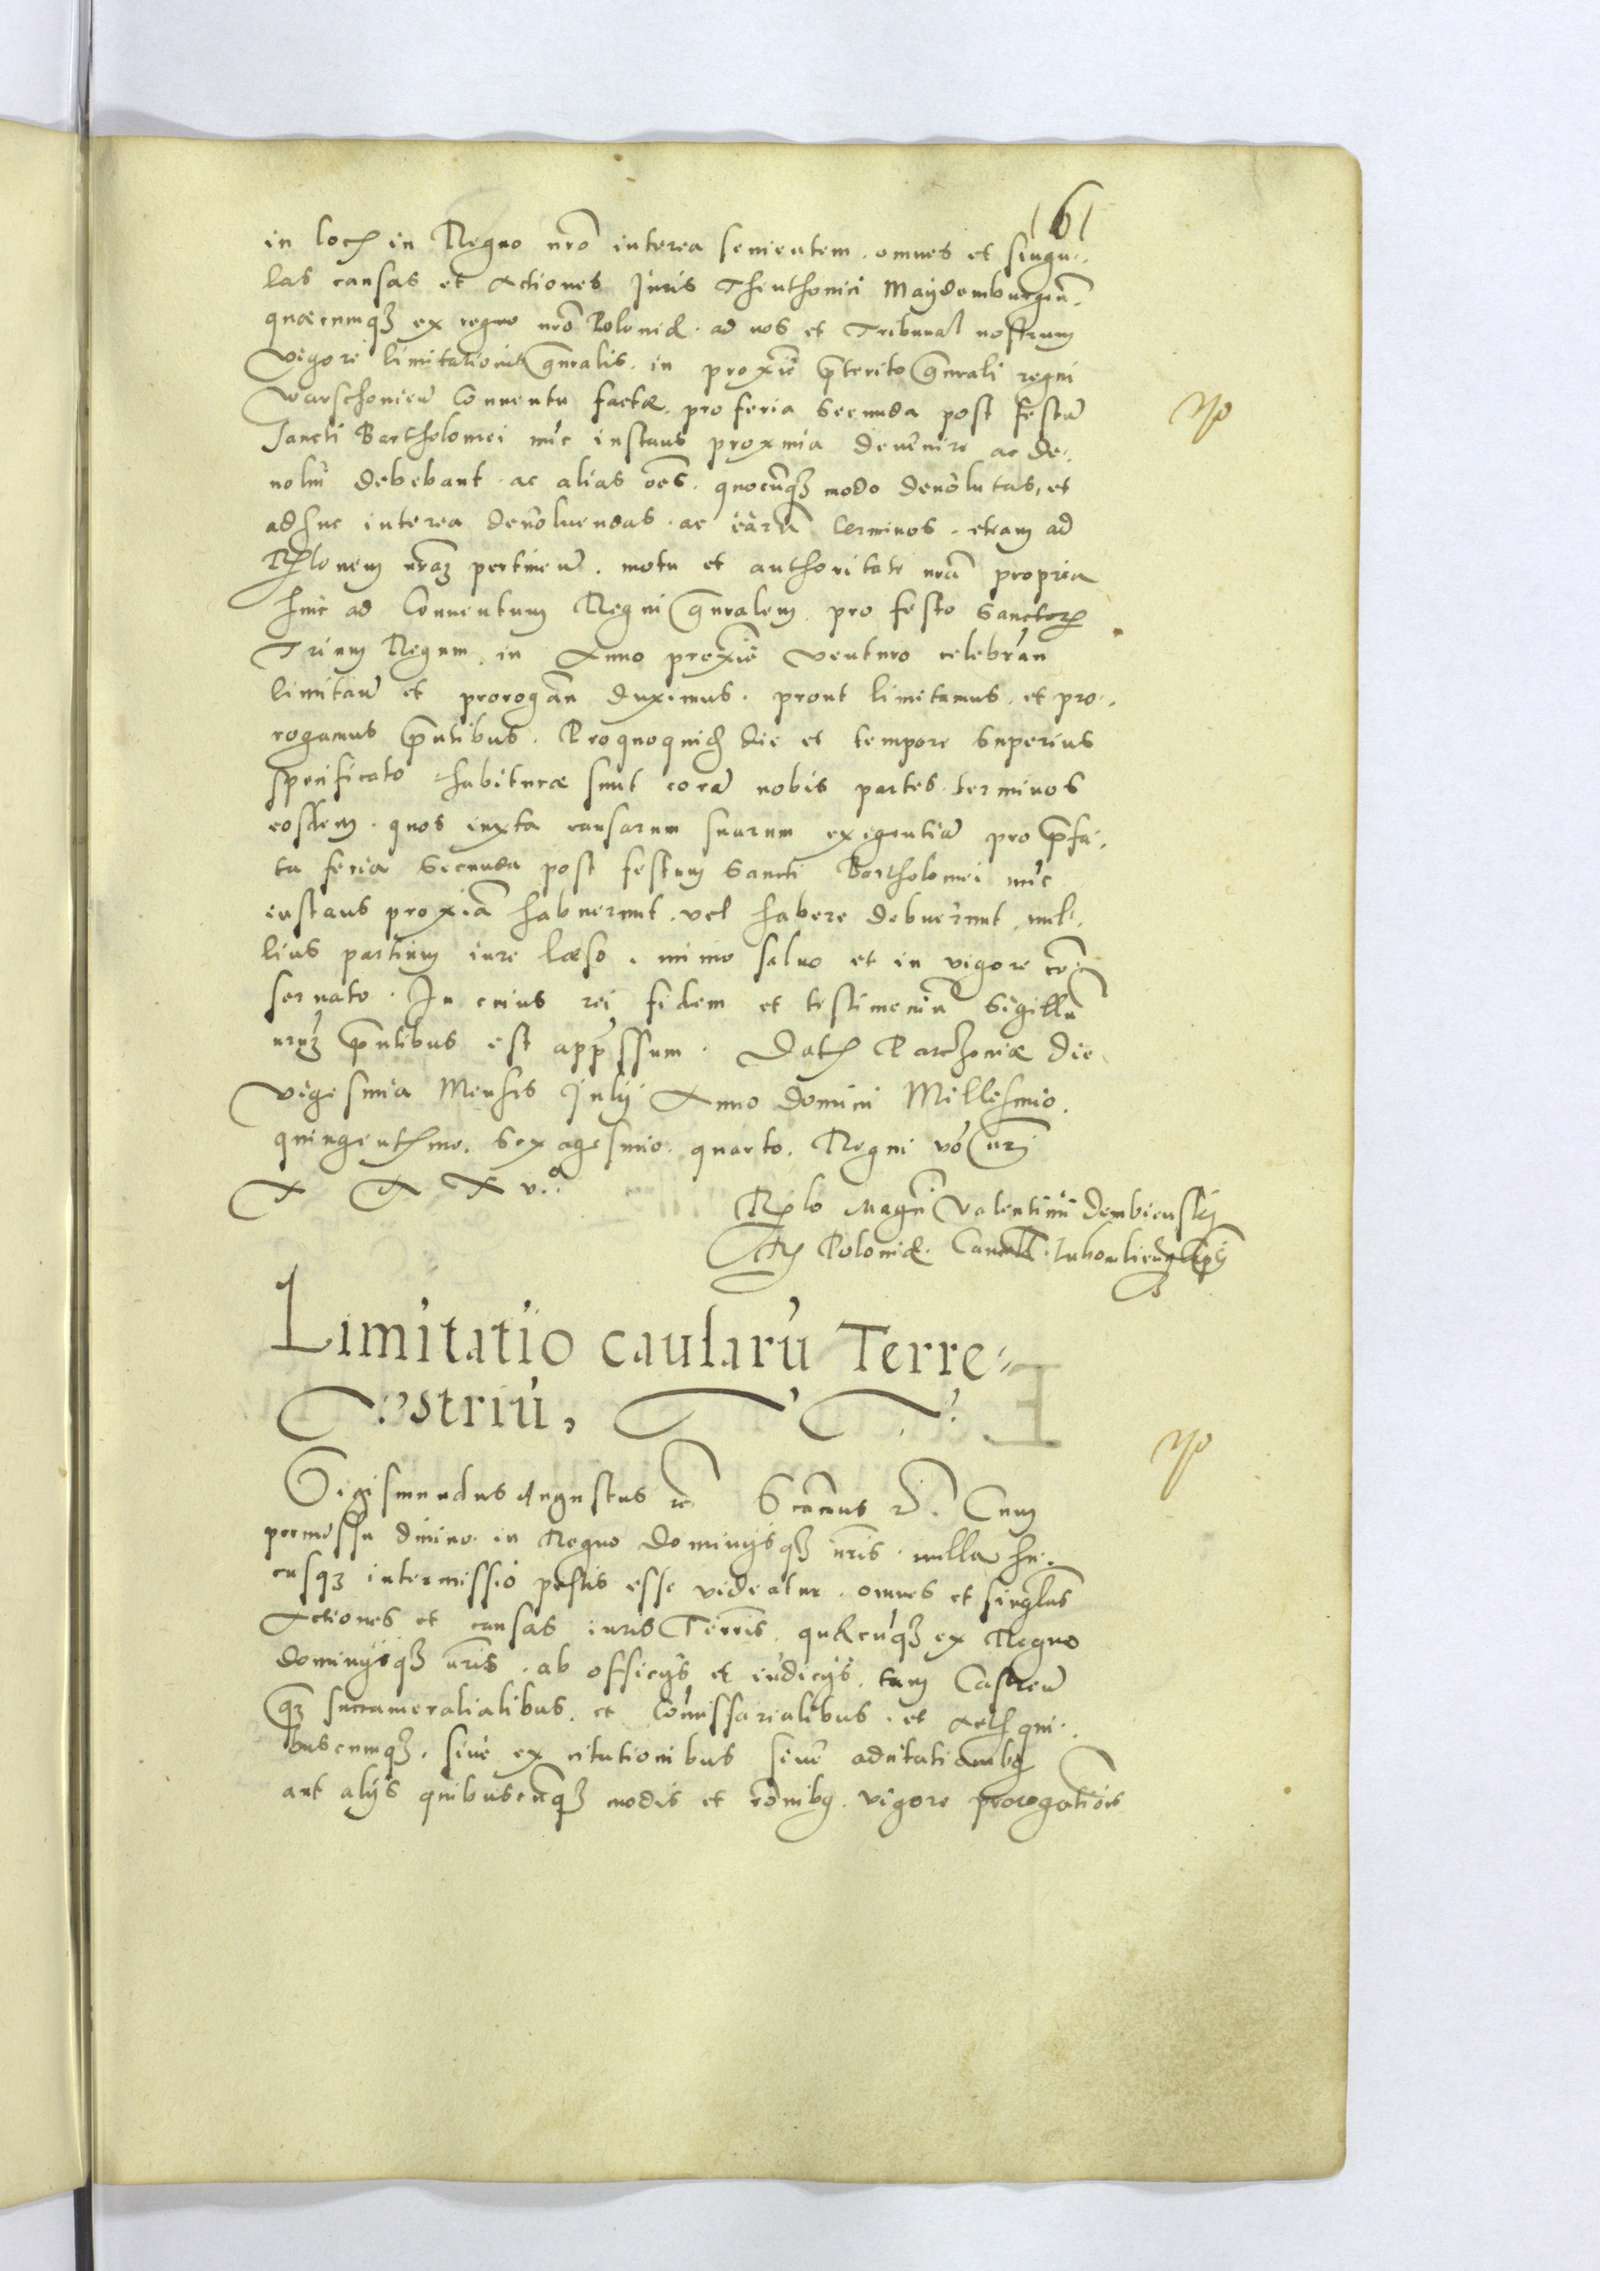 161
in locʒ in Regno nrō interea seuientem. omnes et singu-
las causas et Actiones Juris Theuthonici Maydemburgeñ.
quæcumqʒ ex regno nrō Poloniæ. ad nos et Tribunal nostrum
vigore limitationis gn̄ralis. in proxīe p̄terito gn̄rali regni
warschouieñ Conuentu factæ. pro feria Secunda post festū
Sancti Bartholomei nūc instans proxīma deuenire ac de-
uolui debebant. ac alias oēs. quocūqʒ modo deuolutas, et
adhuc interea deuoluendas. ac eārū terminos. etiam ad
Rłonem nrāʒ pertineñ. motu et authoritate nrā propria
hinc ad Conuentum Regni gn̄ralem. pro festo Sanctorʒ
Trium Regum. in Anno proxīe venturo celebrañ
limitañ et prorogañ duximus. prout limitamus. et pro-
rogamus p̄ntibus. Proquoquidʒ die et tempore superius
specificato habituræ sunt corā nobis partes terminos
eosdem. quos iuxta causarum suarum exigentiā pro p̄fa-
ta feria Secunda post festum Sancti Bartholomei nūc
instans proxīā habuerunt. vel habere debuerunt nul-
lius partium iure læso. immo saluo et in vigore cō-
seruato. In cuius rei fidem et testimoniū Sigillū
nrūʒ p̄ntibus est app̄ssum. Datʒ Parczouiæ die
vigesima Mensis Julij Anno Domini Millesimo.
quingentʒmo. Sexagesimo. quarto. Regni vō nrī
X X X v.º
Rłlo Magc̄i Valentini Dembienskij
Poloniæ. Cancell.
Limitatio causarū Terre-
striū,
Sigismundus Augustus rc̄ Sc̄amus rc̄. Cum
permissu diuino in Regno Dominijsqʒ nrīs. nulla hu-
cusqʒ intermissio pestis esse videatur. omnes et singlas
Actiones et causas iuris Terrīs. quæcūqʒ ex Regno
dominijsqʒ nrīs. ab officijs et iudicijs. tam Castreñ
qʒ succameralialibus. et Cōmissarialibus. et actʒ qui-
buscumqʒ. siue ex citationibus siue adcitationibʒ
aut alijs quibuscūqʒ modis et rōnibʒ. vigore prorogationis